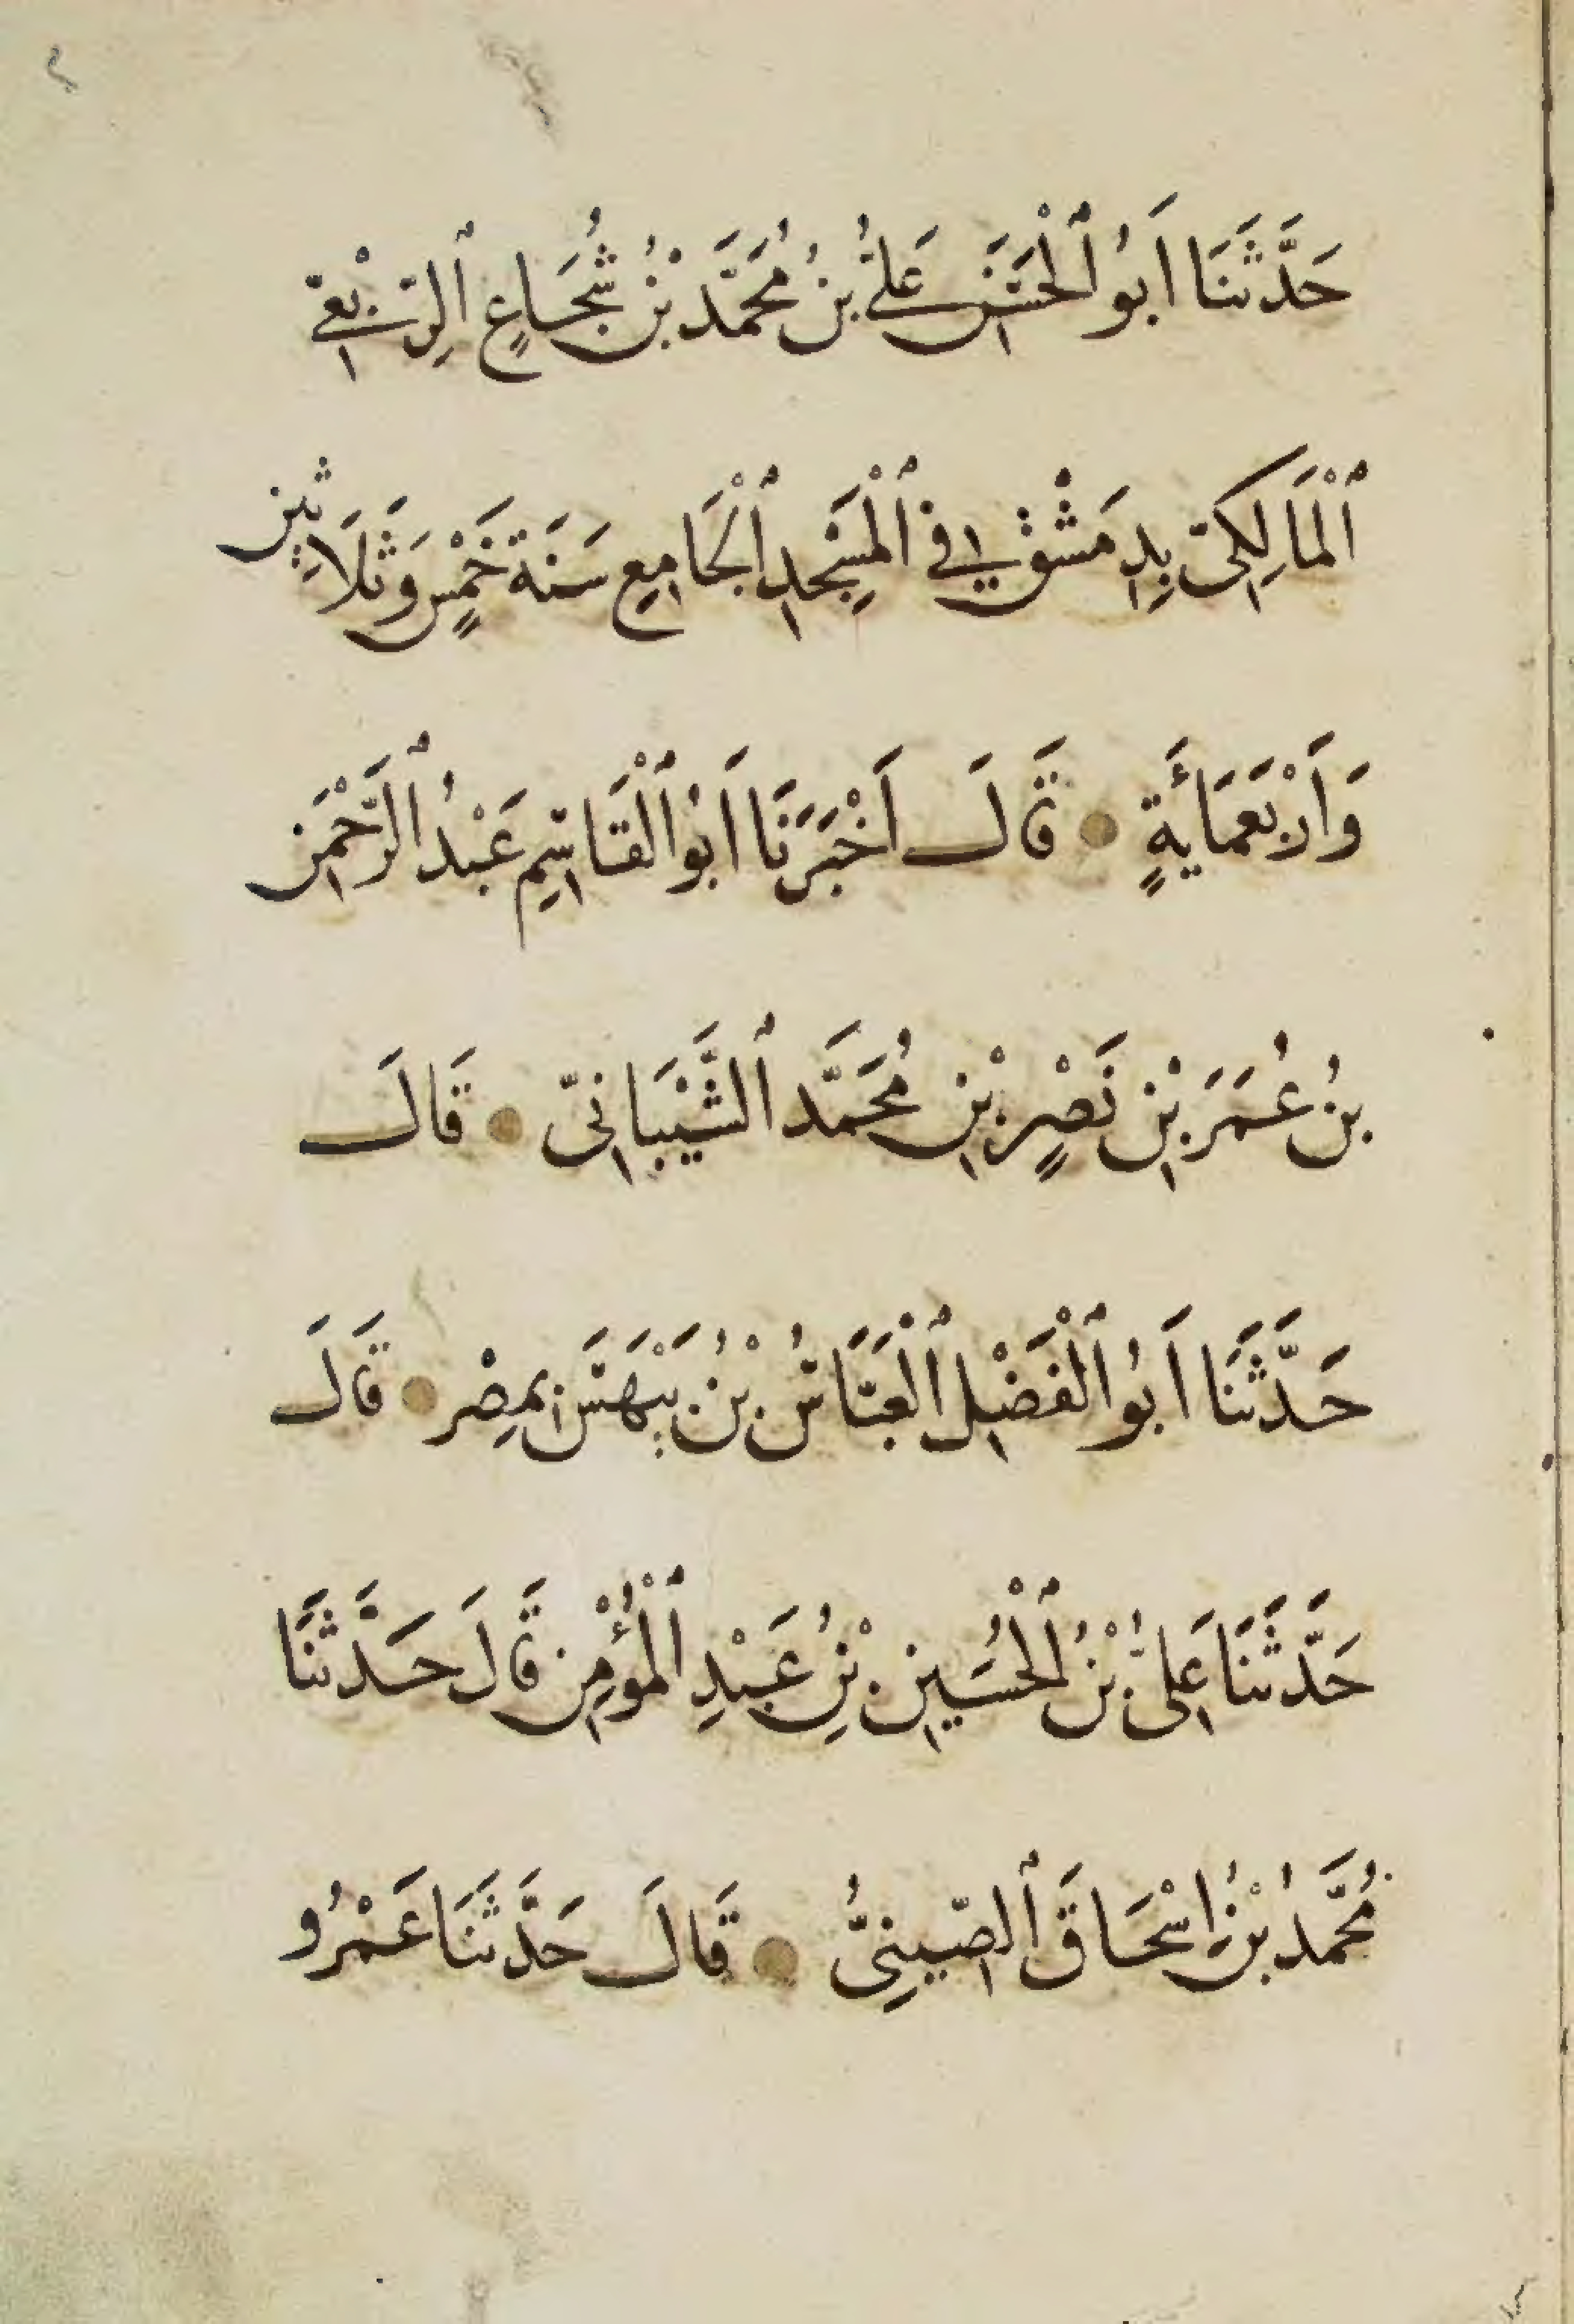 حَدَّثَنَا أَبُو ٱلْحَسَنِ عَلِيُّ بنُ مُحَمَّد بْنُ شُجَاعٍ ٱلرِّبْعِيّ
ٱلْمَالِكِيّ بِدِمَشْقِ فِي ٱلْمَسْجِدِ ٱلْجَامِعِ سَنَةَ خَمْسٍ وَثَلَاثِين
وَأَرْبَعمَائَةٍ قَالَ أَخْبَرَنَا أَبُو ٱلْقَاسِمِ عَبْدُ ٱلرَّحْمٰن
بنُ عُمَرَ بْنِ نَصْرٍ بْنِ مُحَمَّد ٱلشَّيْبَانِيّ قَالَ
حَدَّثَنَا أَبُو ٱلْفَضْلِ ٱلْعَبَّاسُ بْنُ بَيْهَسَ بِمِصْر قَالَ
حَدَّثَنَا عَلِيُّ بْنُ ٱلْحُسَيْنِ بْنِ عَبْدِ ٱلْمُؤْمِنِ قَالَ حَدَّثَنَا
مُحَمَّدُ بْنُ إِسْحَاقَ ٱلصِّينِيُّ قَالَ حَدَّثَنَا عَمْرُو